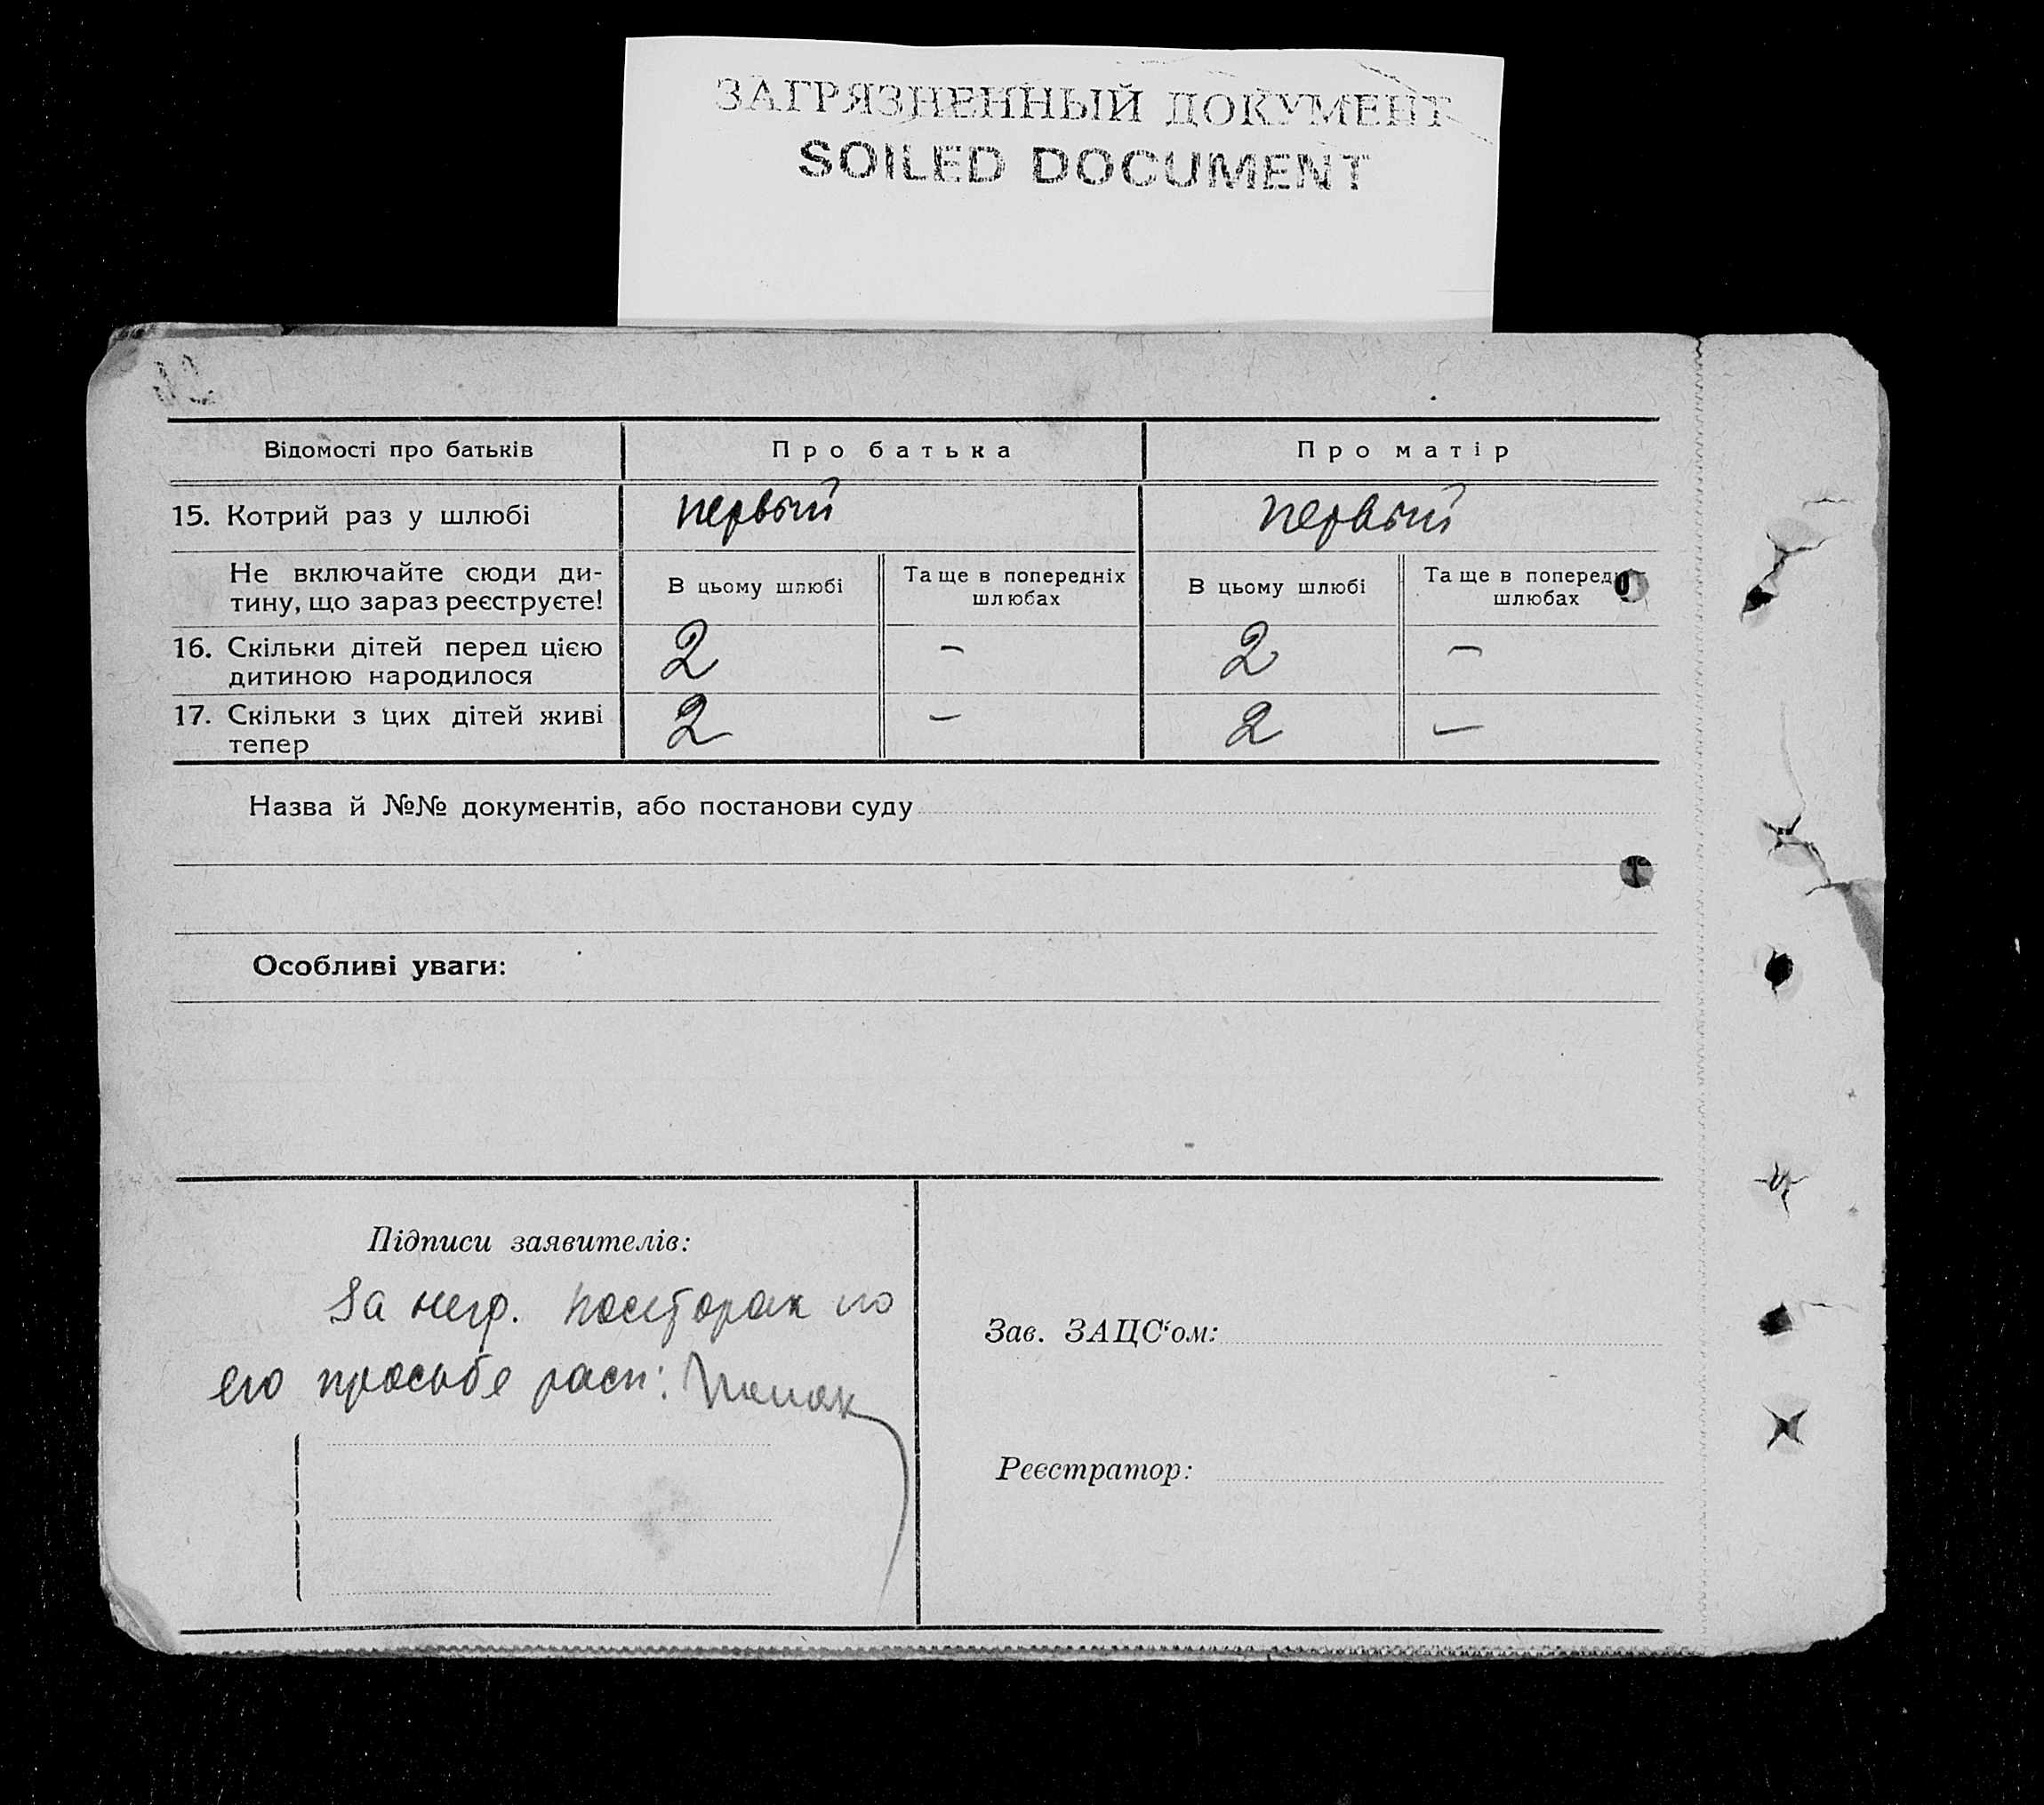 ЗАГРЯЗНЕННЫЙ ДОКУМЕНТ
SOILED DOCUMENT
Відомості про батьків
Про батька
Про матір
15. Котрий раз у шлюбі
первый
первый
Не включайте сюди ди-
тину, що зараз реєструєте!
В цьому шлюбі
Та ще в попередніх
шлюбах
В цьому шлюбі
Та ще в поперед
шлюбах
16. Скільки дітей перед цією
дитиною народилося
2
–
2
–
17. Скільки з цих дітей живі
тепер
2
–
2
–
Назва й №№ документів, або постанови суду
Особливі уваги:
Підписи заявителів:
За негр. по
его просьбе расп:
Зав. ЗАЦС'ом:
Реєстратор: